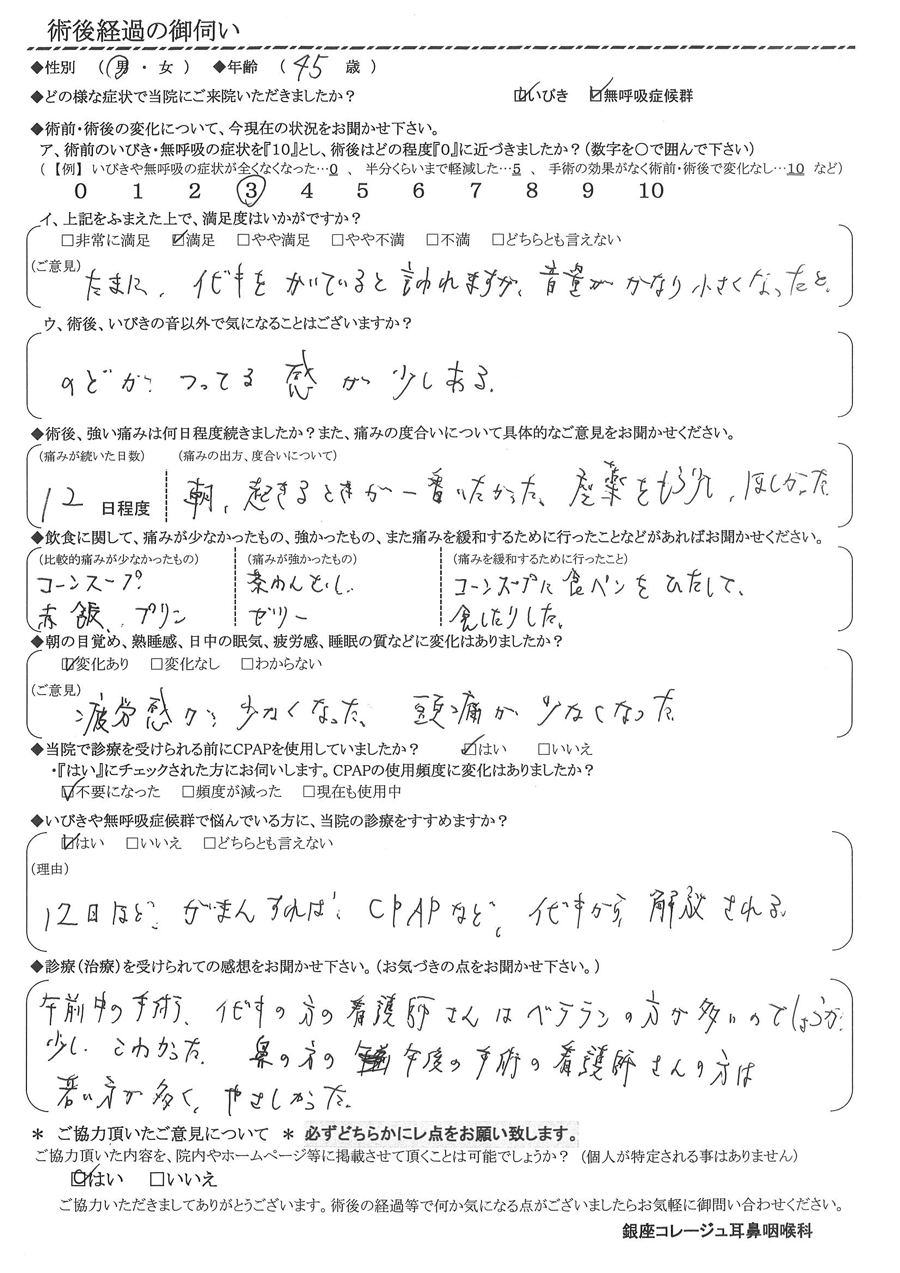 術後経過の御伺い
◆性別 （ 男 ・ 女 ） ◆年齢 （ 45 歳 ）
◆どの様な症状で当院にご来院いただきましたか？ ☑いびき ☑無呼吸症候群
◆術前・術後の変化について、今現在の状況をお聞かせ下さい。
ア、術前のいびき・無呼吸の症状を『10』とし、術後はどの程度『0』に近づきましたか？（数字を〇で囲んで下さい）
（【例】 いびきや無呼吸の症状が全くなくなった…0 、 半分くらいまで軽減した…5 、 手術の効果がなく術前・術後で変化なし…10 など）
0 1 2 3 4 5 6 7 8 9 10
イ、上記をふまえた上で、満足度はいかがですか？
□非常に満足 ☑満足 □やや満足 □やや不満 □不満 □どちらとも言えない
（ご意見）
たまに、イビキをかいていると言われますが、音量がかなり小さくなったと。
ウ、術後、いびきの音以外で気になることはございますか？
のどが つってる 感が少しある。
◆術後、強い痛みは何日程度続きましたか？また、痛みの度合いについて具体的なご意見をお聞かせください。
（痛みが続いた日数） （痛みの出方、度合いについて）
12 日程度 朝、起きるときが一番いたかった、座薬をもう少し、ほしかった
◆飲食に関して、痛みが少なかったもの、強かったもの、また痛みを緩和するために行ったことなどがあればお聞かせください。
（比較的痛みが少なかったもの） （痛みが強かったもの） （痛みを緩和するために行ったこと）
コーンスープ 茶わんむし コーンスープに食パンをひたして、
赤飯、プリン ゼリー 食したりした。
◆朝の目覚め、熟睡感、日中の眠気、疲労感、睡眠の質などに変化はありましたか？
☑変化あり □変化なし □わからない
（ご意見）
疲労感が少なくなった、 頭痛が少なくなった
◆当院で診療を受けられる前にCPAPを使用していましたか？ ☑はい □いいえ
・『はい』にチェックされた方にお伺いします。CPAPの使用頻度に変化はありましたか？
☑不要になった □頻度が減った □現在も使用中
◆いびきや無呼吸症候群で悩んでいる方に、当院の診療をすすめますか？
☑はい □いいえ □どちらとも言えない
（理由）
12日ほど、がまんすれば、CPAPなど、イビキから解放される。
◆診療（治療）を受けられての感想をお聞かせ下さい。（お気づきの点をお聞かせ下さい。）
午前中の手術、イビキの方の看護師さんはベテランの方が多いのでしょうか
少し、こわかった。 鼻の方の 午後の手術の看護師さんの方は
若い方が多く、やさしかった。
＊ ご協力頂いたご意見について ＊ 必ずどちらかにレ点をお願い致します。
ご協力頂いた内容を、院内やホームページ等に掲載させて頂くことは可能でしょうか？ （個人が特定される事はありません）
☑はい □いいえ
ご協力いただきましてありがとうございます。術後の経過等で何か気になる点がございましたらお気軽に御問い合わせください。
銀座コレージュ耳鼻咽喉科